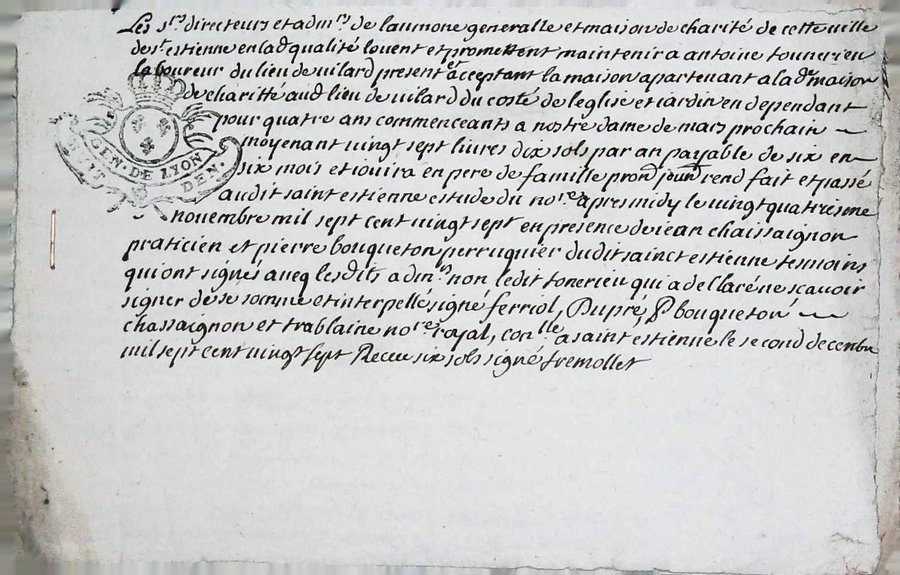 Les srs directeurs et admrs de laumone generalle et maison de charité de cette ville
de st estienne en lad qualité louent et promettent maintenir a antoine tonnerieu
laboureur du lieu de vilard present et acceptant la maison apartenant a lade maison
de charitté aud lieu de vilard du costé de leglise et iardin en dependant
pour quatre ans commenceants a nostre dame de mars prochain
moyenant vingt sept livres dix sols par an payable de six en
six mois et iouira en pere de famille prond jourd rend fait et passé
audit saint estienne estude du nore apres midy le vingt quatriesme
novembre mil sept cent vingt sept en presence de iean chaissaignon
praticien et pierre bouqueton perruquier dudit sainct estienne tesmoins
qui ont signés aveq lesdits admrs non ledit tonerieu qui a declaré ne scavoir
signer de ce somme et interpellé signé ferriol, Dupré, P bouqueton
chassaignon et trablaine nore royal, conlle a saint estienne le second decembre
mil sept cent vingt sept Receu six sols signé fremollet
GEN. DE LYON
HUIT DEN.